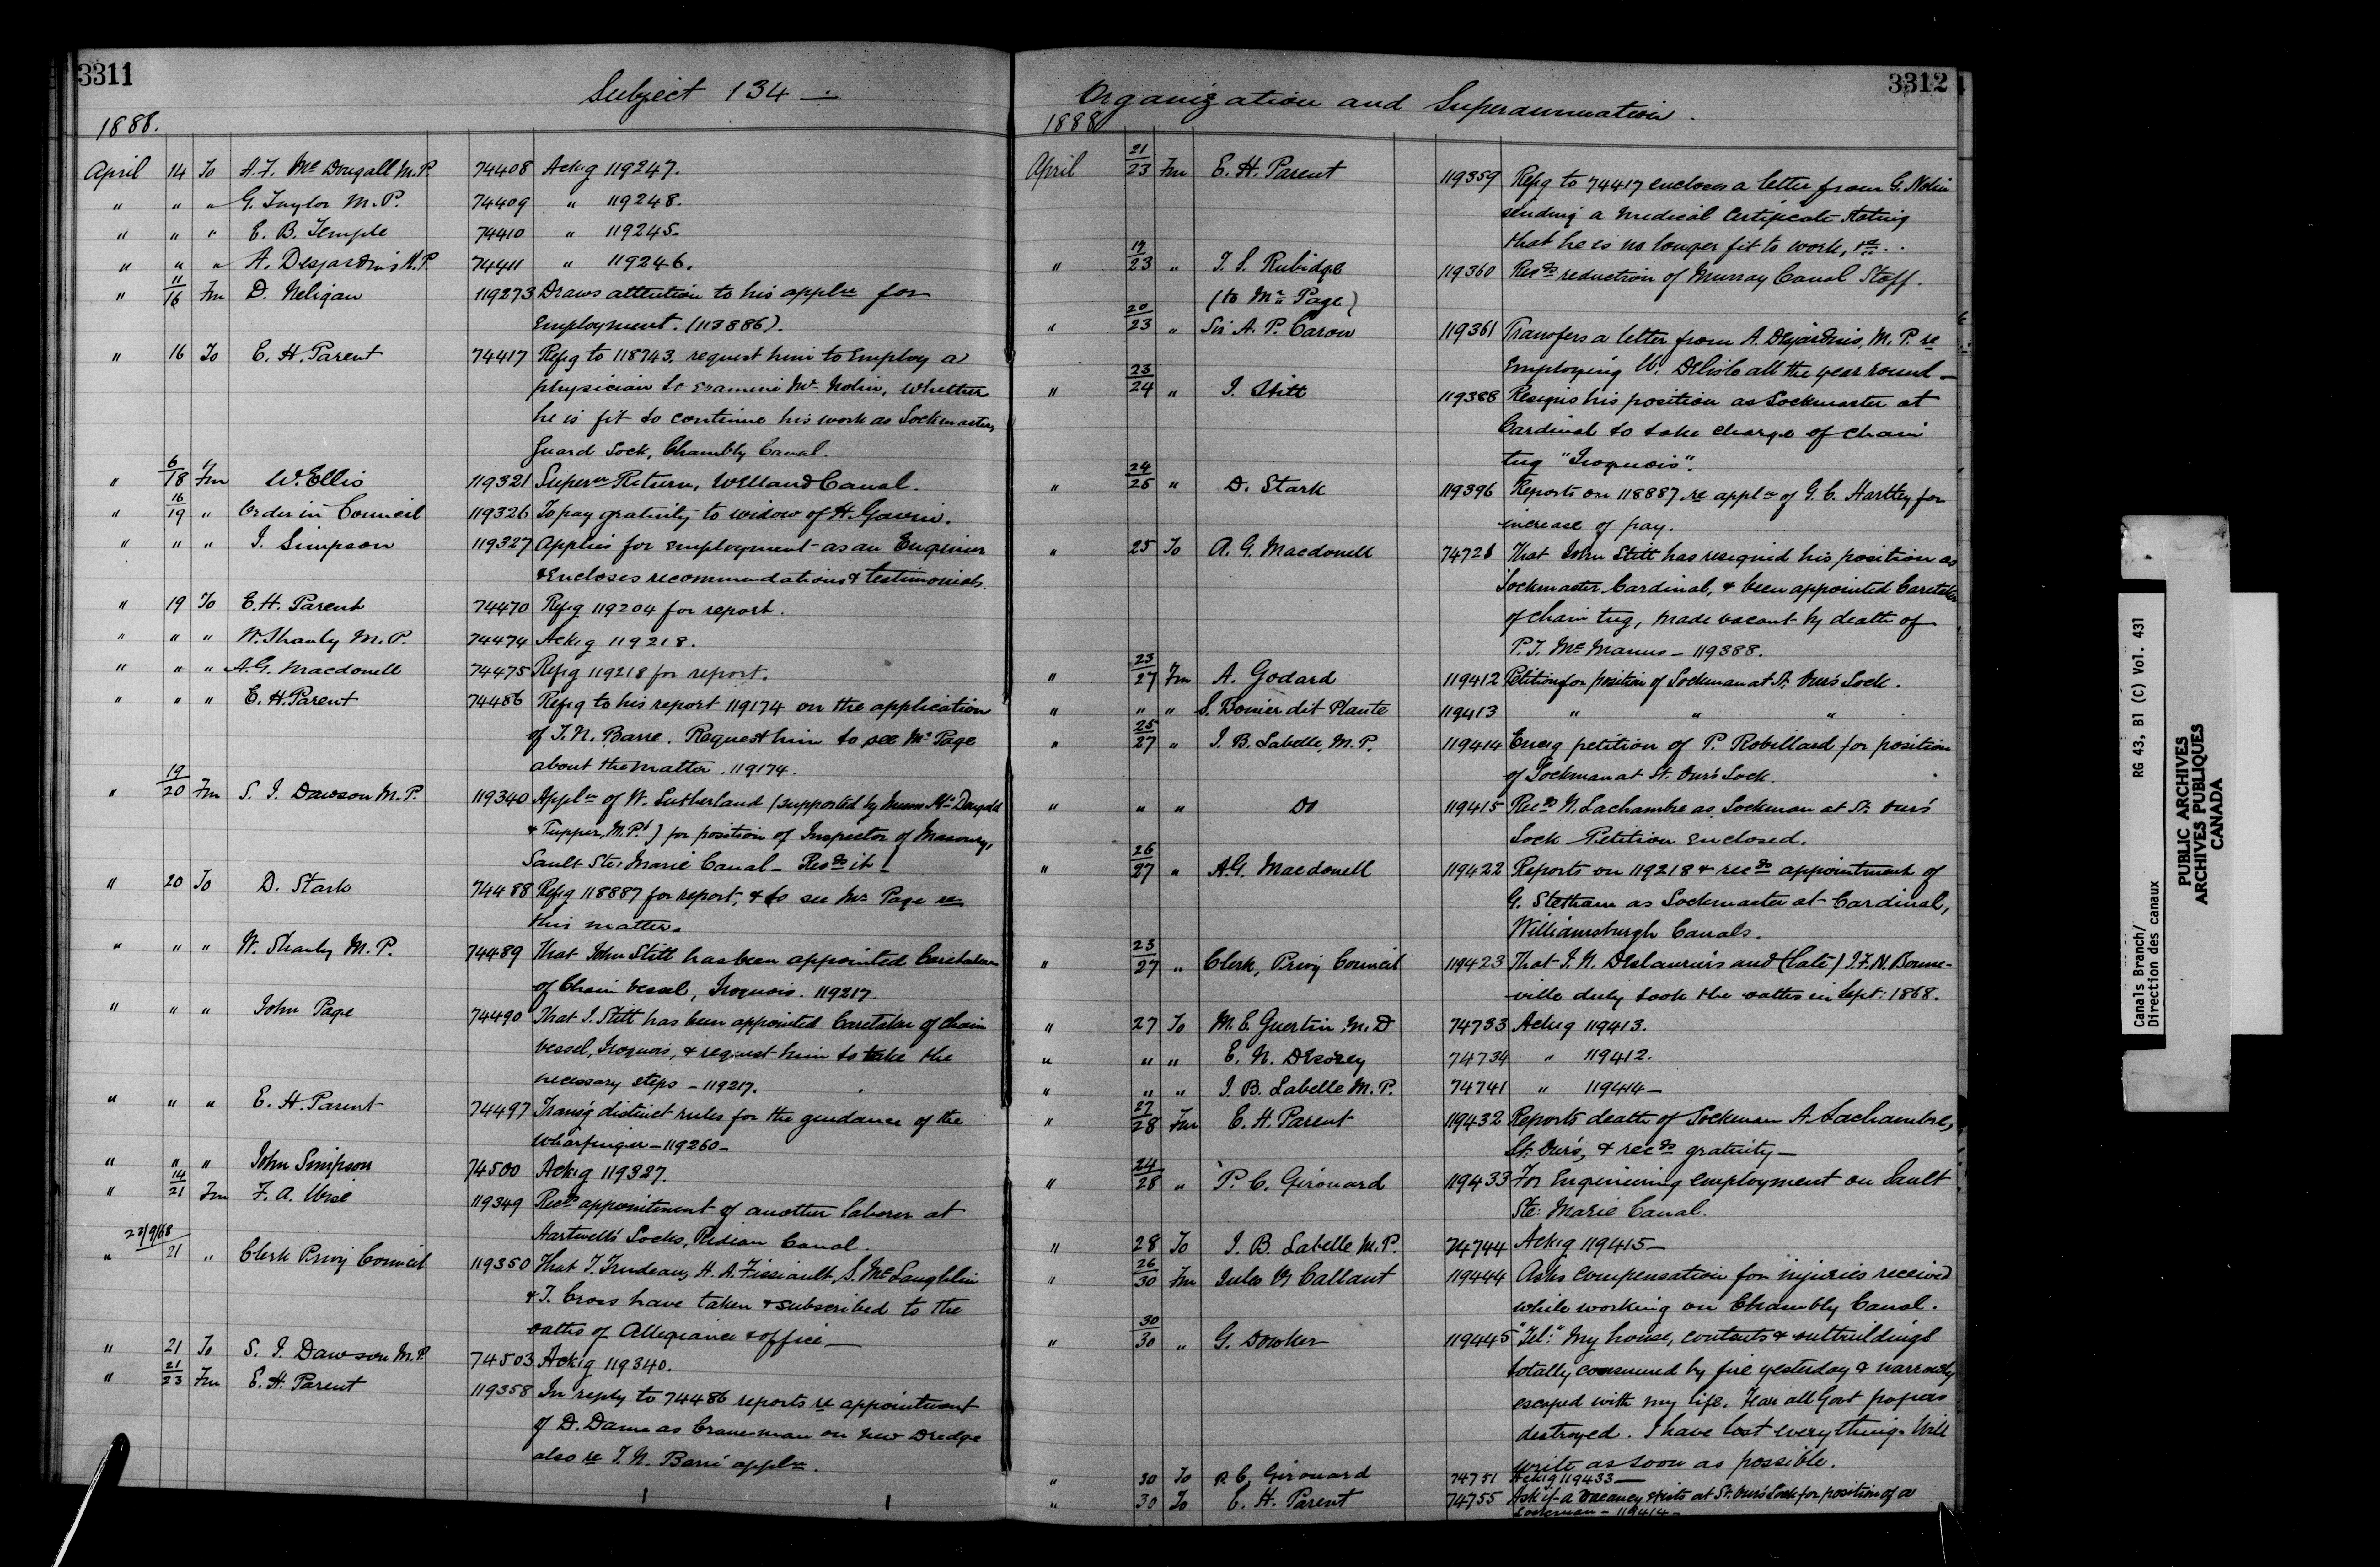 3311
Subject 134 —
1888.
April 14 To A. F. McDougall M.P. 74408 Ackg 119247.
" " " G. Taylor M.P. 74409 " 119248.
" " " E. B. Temple 74410 " 119245.
" " " A. Desjardins M.P. 74411 " 119246.
" 11/16 Fm D. Neligan 119273 Draws attention to his appln for
Employment. (113886).
" 16 To E. H. Parent 74417 Refg to 118743, request him to Employ a
physician to examine Mr Nolin, Whether
he is fit to continue his work as Lockmaster,
Guard Lock, Chambly Canal.
" 6/18 Fm W. Ellis 119321 Supern Return, Welland Canal.
" 16/19 " Order in Council 119326 To pay gratuity to widow of H. Gavin.
" " " J. Simpson 119327 Applies for employment as an Engineer
& Encloses recommendations & testimonials.
" 19 To E. H. Parent 74470 Refg 119204 for report.
" " " W. Shanly M.P. 74474 Ackg 119218.
" " " A. G. Macdonell 74475 Refg 119218 for report.
" " " E. H. Parent 74486 Refg to his report 119174 on the application
of J. N. Barre. Request him to see Mr Page
about the matter. 119174.
" 19/20 Fm S. J. Dawson M.P. 119340 Appln of W. Sutherland (supported by Messrs McDougald
& Tupper, M.P.s) for position of Inspector of Masonry,
Sault Ste. Marie Canal — Recds it —
" 20 To D. Stark 74488 Refg 118887 for report, & to see Mr Page re
this matter.
" " " W. Shanly M.P. 74489 That John Stitt has been appointed Caretaker
of Chain Vessel, Iroquois. 119217.
" " " John Page 74490 That J. Stitt has been appointed Caretaker of chain
vessel, Iroquois, & request him to take the
necessary steps — 119217.
" " " E. H. Parent 74497 Transg distinct rules for the guidance of the
Wharfinger — 119260 —
" " " John Simpson 74500 Ackg 119327.
" 14/21 Fm F. A. Wise 119349 Recds appointment of another laborer at
Hartwell's Locks, Rideau Canal.
" 23/9/68 / 21 " Clerk Privy Council 119350 That T. Trudeau, H. A. Fissiault, S. McLaughlin
& T. Cross have taken & subscribed to the
oaths of Allegiance & office —
" 21 To S. J. Dawson M.P. 74503 Ackg 119340.
" 21/23 Fm E. H. Parent 119358 In reply to 74486 reports re appointment
of D. Dame as Cranesman on new Dredge
also re J. N. Barré appln.
3312
Organization and Superannuation.
1888
April 21/23 Fm E. H. Parent 119359 Refg to 74417 encloses a letter from G. Nolin
sending a Medical Certificate stating
that he is no longer fit to work, &c.
" 19/23 " T. S. Rubidge 119360 Recds reduction of Murray Canal Staff.
(to Mr Page)
" 20/23 " Sir A. P. Caron 119361 Transfers a letter from A. Desjardins, M.P. re
Employing W. Delisle all the year round —
" 23/24 " J. Stitt 119388 Resigns his position as Lockmaster at
Cardinal to take charge of chain
tug "Iroquois".
" 24/25 " D. Stark 119396 Reports on 118887 re appln of G. C. Hartley for
increase of pay.
" 25 To A. G. Macdonell 74721 That John Stitt has resigned his position as
Lockmaster Cardinal, & been appointed Caretaker
of chain tug, made vacant by death of
P. J. McManus — 119388.
" 23/27 Fm A. Godard 119412 Petition for position of Lockman at St. Ours Lock.
" " " S. Bonier dit Plante 119413 " " "
" 25/27 " J. B. Labelle, M.P. 119414 Encsg petition of P. Robillard for position
of Lockman at St. Ours Lock.
" " " Do 119415 Recds N. Lachambre as Lockman at St. Ours
Lock Petition enclosed.
" 26/27 " A. G. Macdonell 119422 Reports on 119218 & recds appointment of
G. Stetham as Lockmaster at Cardinal,
Williamsburgh Canals.
" 23/27 " Clerk, Privy Council 119423 That J. N. Deslauriers and (late) J. F. N. Bonne-
ville duly took the oaths in Sept: 1868.
" 27 To M. E. Guertin M.D 74733 Ackg 119413.
" " " E. N. 74734 " 119412.
" " " J. B. Labelle M.P. 74741 " 119414 —
" 27/28 Fm E. H. Parent 119432 Reports death of Lockman A. Lachambre,
St. Ours, & recds gratuity —
" 24/28 " P. C. Girouard 119433 For Engineering employment on Sault
Ste: Marie Canal.
" 28 To J. B. Labelle M.P. 74744 Ackg 119415 —
" 26/30 Fm Jules V. Callant 119444 Asks compensation for injuries received
while working on Chambly Canal.
" 30/30 " G. Dowker 119445 "Tel:" My house, contents & outbuildings
totally consumed by fire yesterday & narrowly
escaped with my life. Fear all Govt papers
destroyed. I have lost everything. Will
write as soon as possible.
" 30 To P. C. Girouard 74751 Ackg 119433 —
" 30 To E. H. Parent 74755 Ask if a vacancy exists at St. Ours Lock for position of a
Lockman — 119414 —
Canals Branch/
Direction des canaux
RG 43, B1 (C) Vol. 431
PUBLIC ARCHIVES
ARCHIVES PUBLIQUES
CANADA